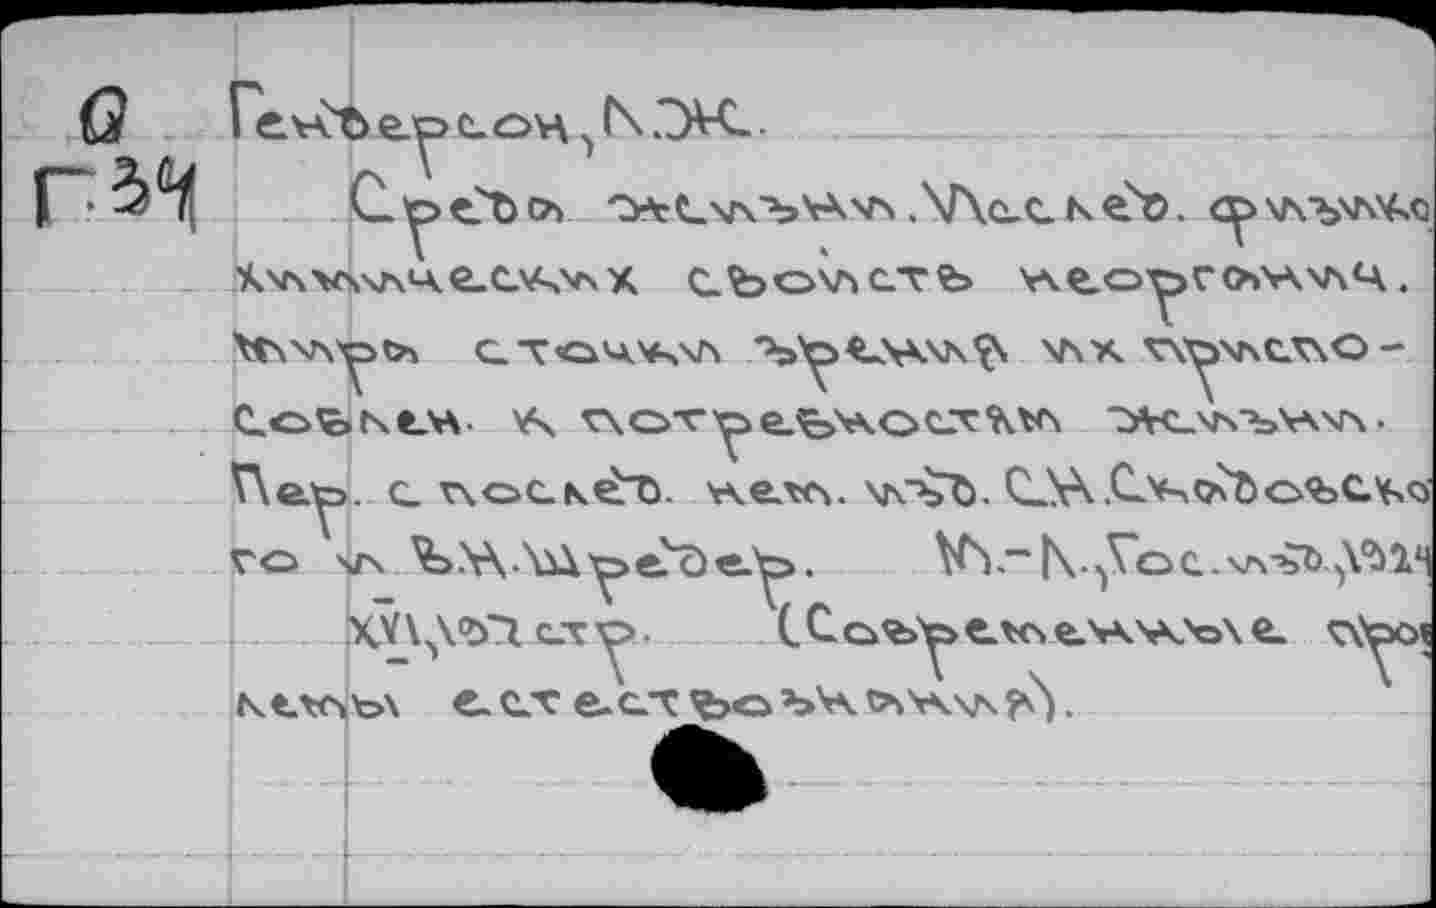 Q Гендерсон, Л.Ж.
Г.34 Среда жизни. Исслед. физико
химических свойств неорганич.
мира с точки зрения их приспо-
соблен. к потребностям жизни.
Пер. с послед. нем. изд. С.Н.Скадовско
го и В.Н.Шредер. М.-Л.,Гос.изд.,1924
XVI,197 стр. (Современные про
лемы естествознания).